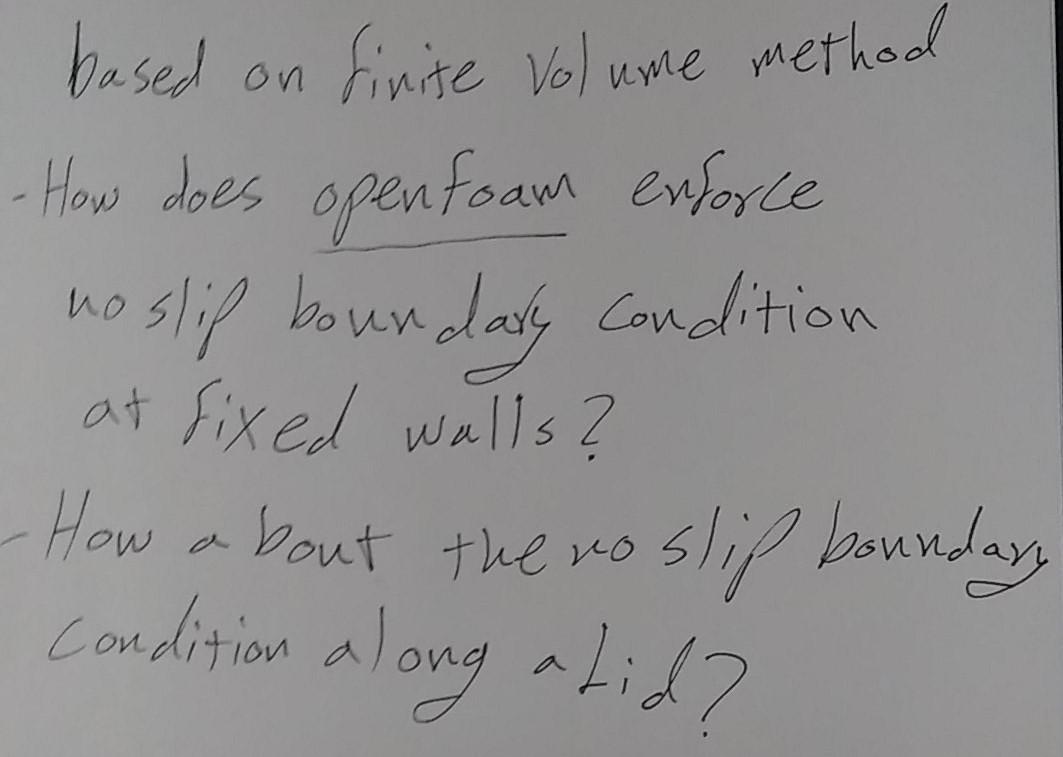 based on finite volume method
- How does openfoam enforce
no slip boundary condition
at fixed walls?
- How about the no slip boundary
condition along a Lid?